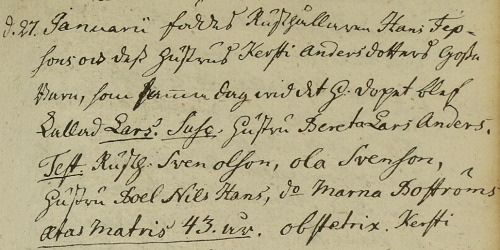 d. 27. Januarii föddes Rusthållaren Hans Jep-
sons och dess hustrus Kersti Andersdotters Gossa
Barn, som samma dag wid det H. dopet blef
kallad Lars. Susc. hustru Bereta Lars Anders.
Test. Rusth. Sven olson, ola Svenson,
hustru Boel Nils Hans, do Marna Boströms
ætas matris 43. år. obstetrix. Kersti